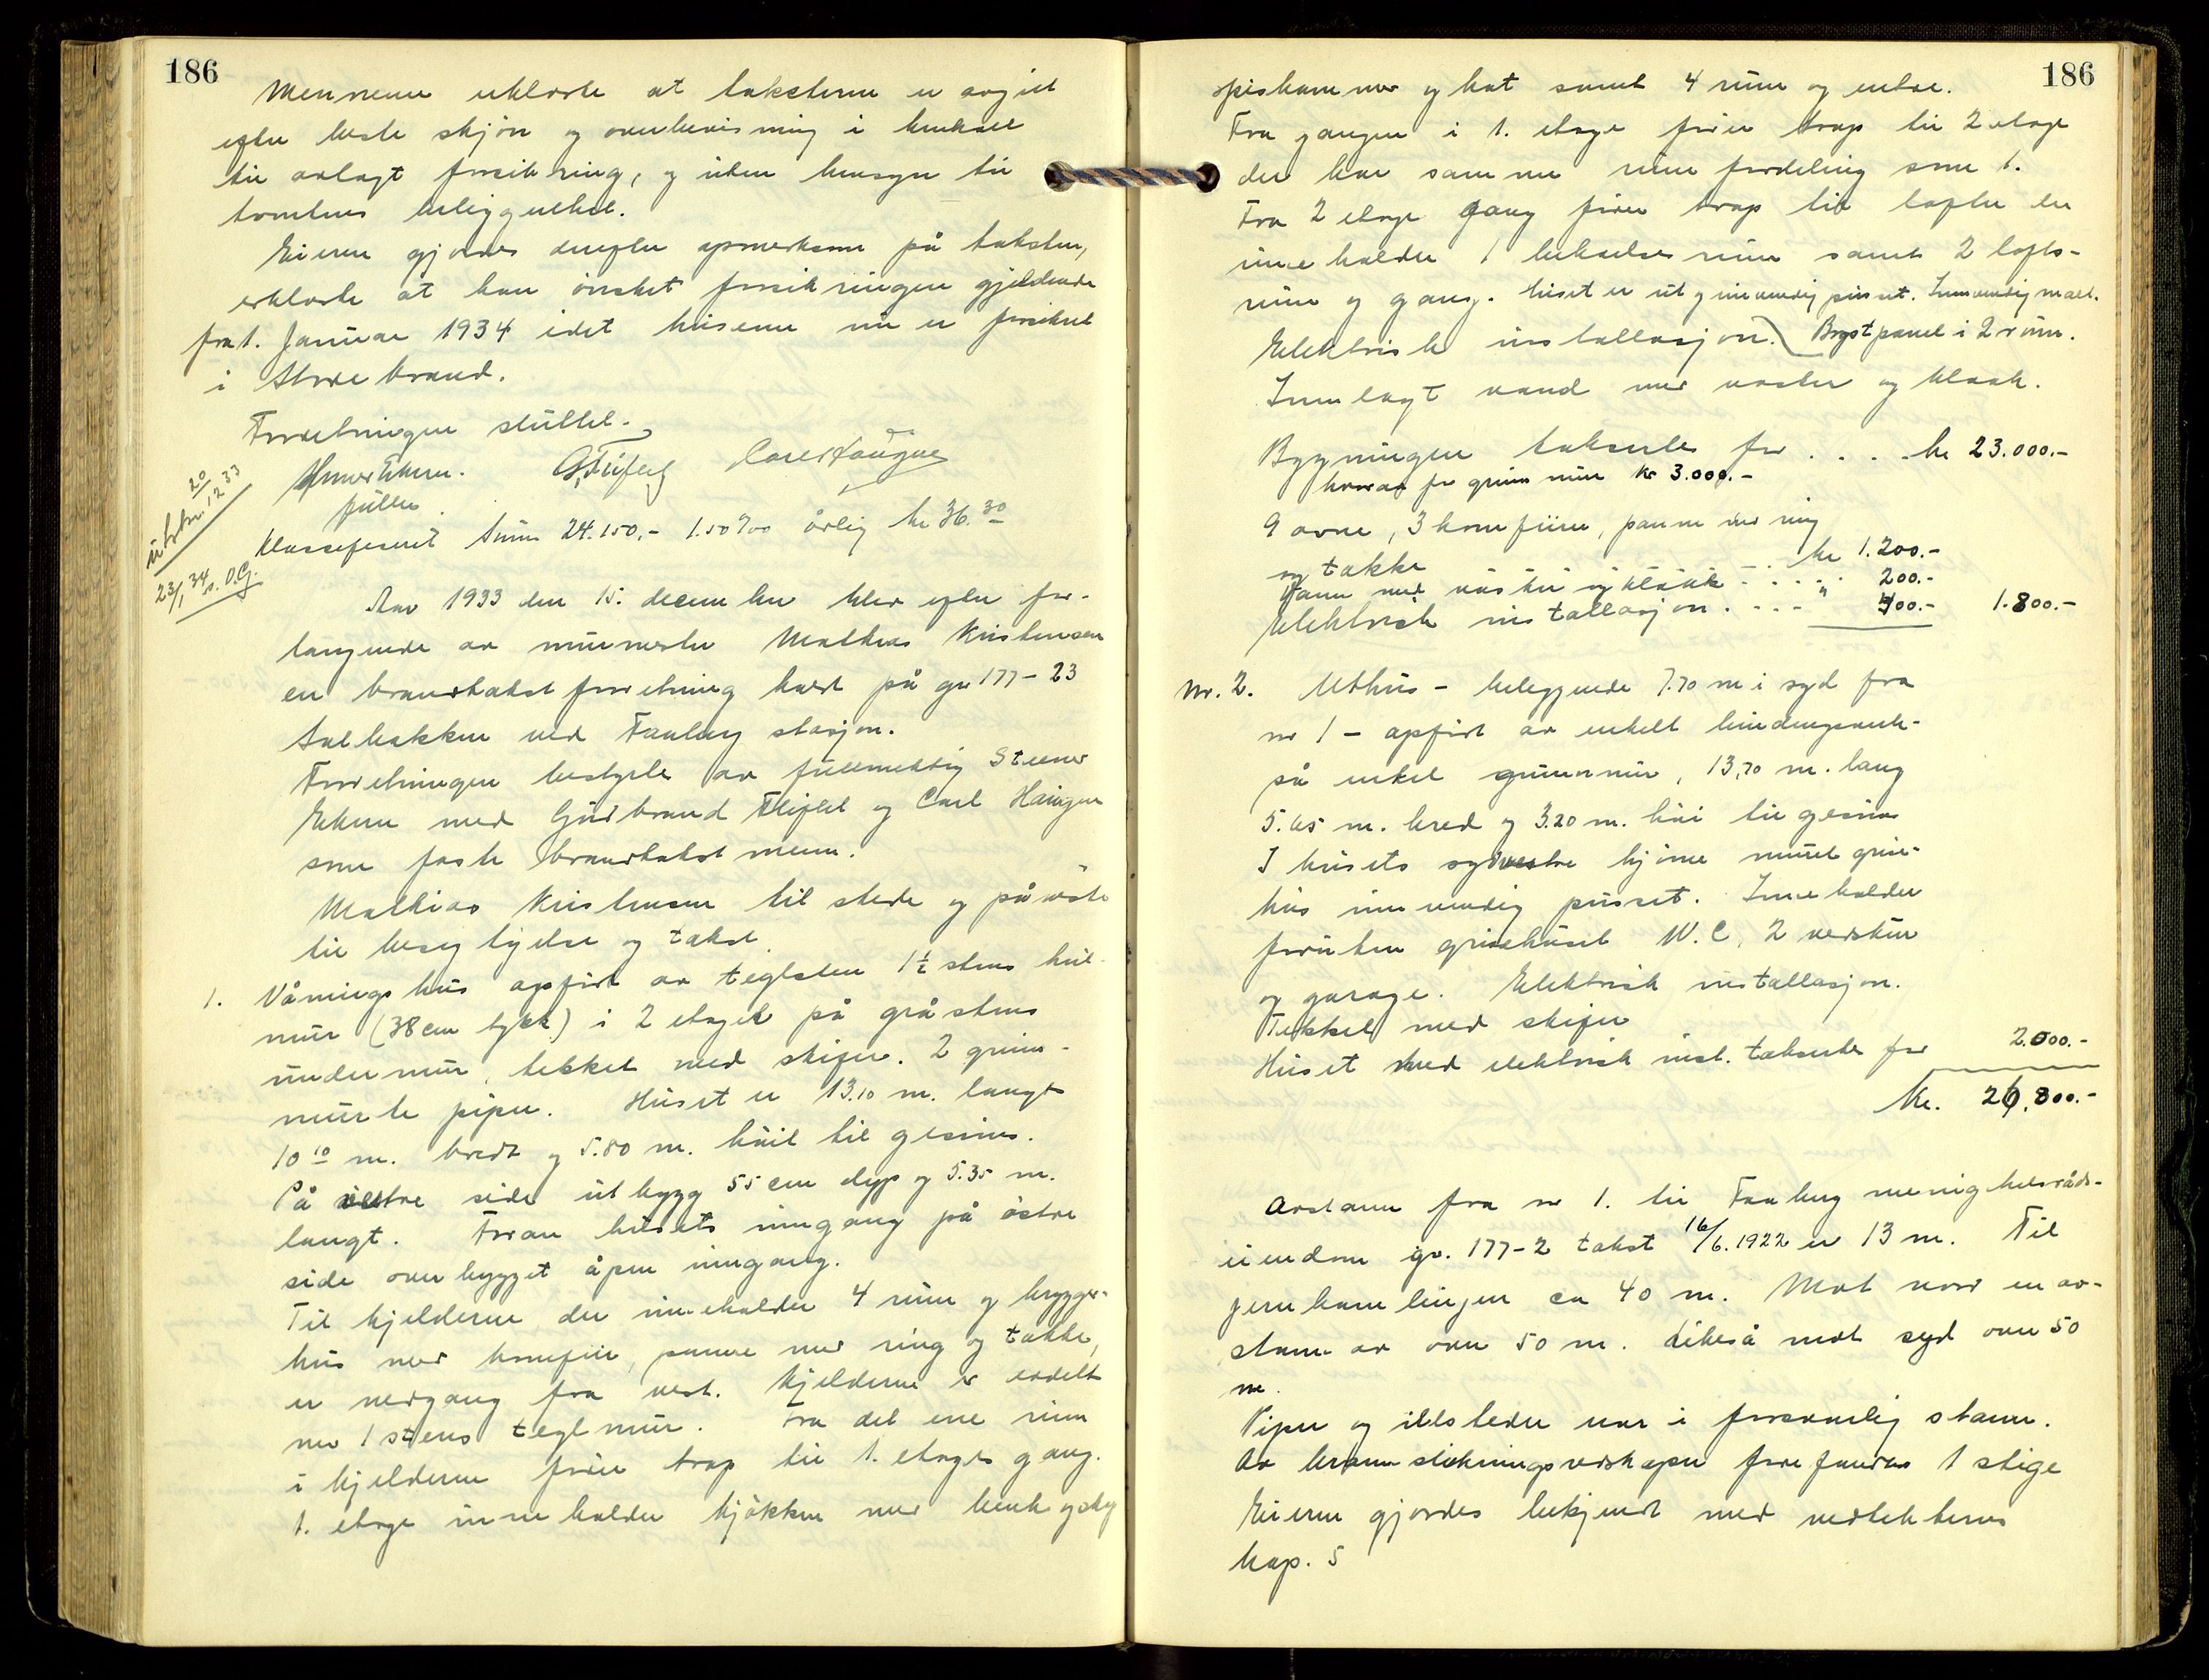 186
Mennene erklærte at taksterne er avgivet
efter beste skjøn og overbevisning i henhold
til avlagt forsikring, og uten hensyn til
tomtens beliggenhet.
Eieren gjordes derefter opmerksom på taksten,
erklærte at han ønsket forsikringen gjeldende
fra 1. Januar 1934 idet husene nu er forsikret
i Storebrand.
Forretningen sluttet.
fullm.
utstm. 20/12 33
23/1 34 s. O.G.
Klassefiseret Sum 24.150.- 1.50 ‰ årlig kr 36.30
Aar 1933 den 15. december blev efter for-
langende av murmester Mathias Kristensen
en brandtakst forretning holdt på gr 177-23
Solbakken ved Faaberg stasjon.
Forretningen bestyrtes av fullmektig Steener
Ekern med Gudbrand Fliflet og Carl Haugen
som faste brandtakstmenn.
Mathias Kristensen til stede og påviste
til besigtjelse og takst.
1. Våningshus opført av teglsten 1½ stens hul-
mur (38 cm tykk) i 2 etager på gråstens
undermur, tekket med skifer. 2 grunn-
murte piper. Huset er 13.10 m. langt
10 10 m. bredt og 5.80 m. høit til gesims.
På vestre side utbygg 55 cm dyp og 5.35 m.
langt. Foran husets inngang på østre
side overbygget åpen inngang.
Til kjelderen der inneholder 4 rum og brygger-
hus med komfür, panne med ring og takke,
er nedgang fra vest. Kjelderen er avdelt
med 1 stens teglmur. Fra det ene rum
i kjelderen fører trap til 1. etages gang.
1. etage inneholder kjøkken med benk og sky
186
spiskammer og kot samt 4 rum og entre.
Fra gangen i 1. etage fører trap til 2 etage
der har samme rum fordeling som 1.
Fra 2 etage gang fører trap til loftet der
inneholder 1 bekvelses rum samt 2 lofts-
rum og gang. Huset er ut og innvendig pusset. Innvendig malt.
Elektrisk installasjon. Brystpanel i 2 rum.
Innlagt vand med vasker og kloak.
Bygningen takseres for . . . . kr 23.000.-
hvorav for grunnmur kr 3.000.-
9 ovne, 3 komfürer, panne med ring
og takke kr 1.200.-
Vann med vasker og kloakk - . . . . " 200.-
Elektrisk installasjon . . . - 400.- 1.800.-
Nr. 2. Uthus - beliggende 7.70 m i syd fra
nr 1 - opført av enkelt bindingsverk-
på enkel grunnmur, 13,70 m. lang
5.65 m. bred og 3.20 m. høi til gesims
I husets sydvestre hjørne muret grise-
hus innvendig pusset. Inneholder
foruten grisehuset W.C, 2 vedskur
og garage. Elektrisk installasjon.
Tekket med skifer
Huset med elektrisk inst. takseres for 2.000.-
Kr. 26.800.-
Avstann fra nr 1. til Faaberg menighetsråds-
eiendom gr. 177-2 takst 16/6.1922 er 13 m. Til
jernbanelinjen ca 40 m. Mot nord en av-
stann av over 50 m. Likeså mot syd over 50
m.
Piper og ildsteder var i forsvarlig stann.
Av brannslukningsredskaper forefandtes 1 stige
Eieren gjordes bekjendt med vedtekternes
kap. 5